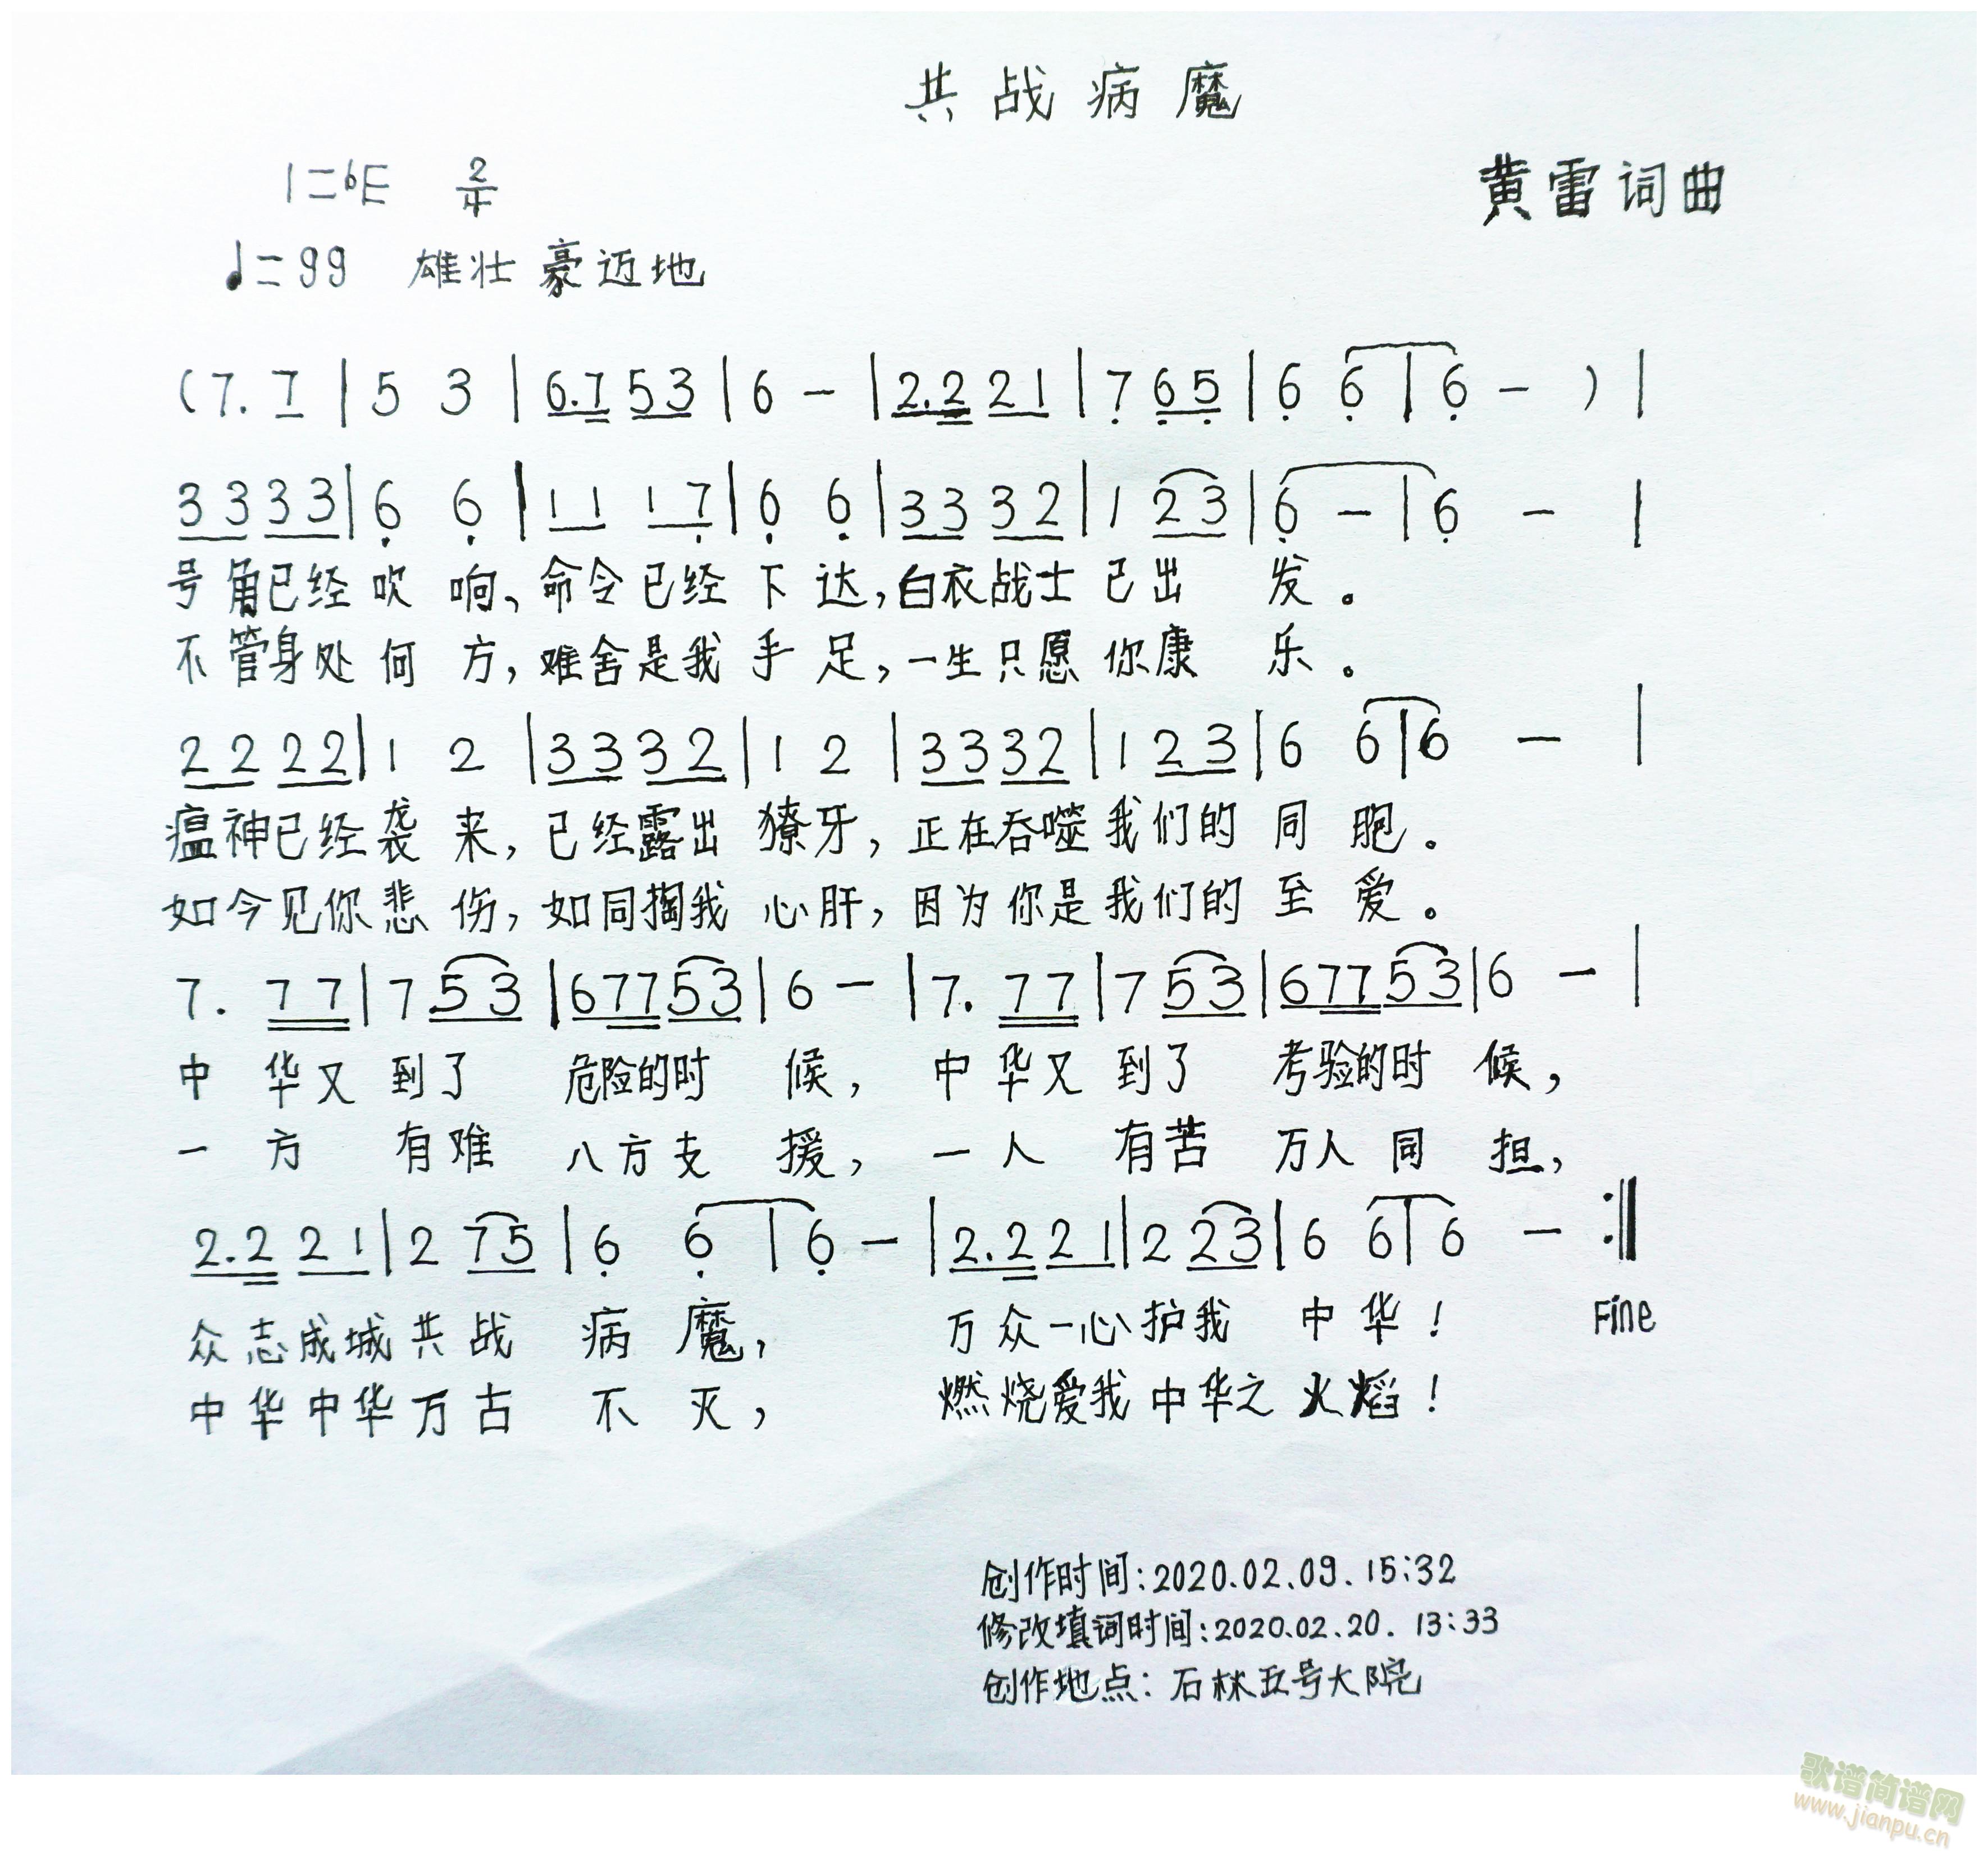 共战病魔
1=♭E 2/4
黄雷词曲
♩=99 雄壮豪迈地
(7. 7 | 5 3 | 6.7 53 | 6 - | 2.2 21 | 7 65 | 6 6 | 6 - ) |
33 33 | 6 6 | 11 17 | 6 6 | 33 32 | 1 23 | 6 - | 6 - |
号角已经吹响、命令已经下达,白衣战士已出发。
不管身处何方,难舍是我手足,一生只愿你康乐。
22 22 | 1 2 | 33 32 | 1 2 | 33 32 | 1 23 | 6 6 | 6 - |
瘟神已经袭来,已经露出獠牙,正在吞噬我们的同胞。
如今见你悲伤,如同掏我心肝,因为你是我们的至爱。
7. 77 | 7 53 | 677 53 | 6 - | 7. 77 | 7 53 | 677 53 | 6 - |
中华又到了危险的时候,中华又到了考验的时候,
一方有难八方支援,一人有苦万人同担,
2.2 21 | 2 75 | 6 6 | 6 - | 2.2 21 | 2 23 | 6 6 | 6 - :‖
众志成城共战病魔,万众一心护我中华! Fine
中华中华万古不灭,燃烧爱我中华之火焰!
创作时间:2020.02.09.15:32
修改填词时间:2020.02.20. 13:33
创作地点:石林五号大院
歌谱简谱网
www.jianpu.cn